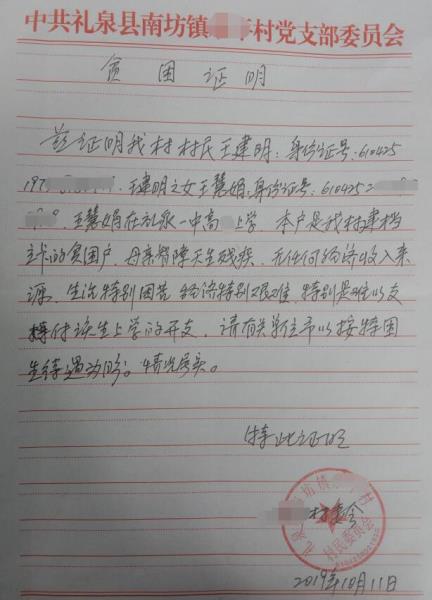 中共礼泉县南坊镇 村党支部委员会
贫困证明
兹证明我村村民王建明，身份证号：610425
197 ，王建明之女王慧娟，身份证号：6104252
，王慧娟在礼泉一中高 上学，本户是我村建档
立卡的贫困户，母亲智障天生残疾，无任何经济收入来
源，生活特别困苦，经济特别艰难，特别是难以支
付该生上学的开支，请有关单位予以按特困
生待遇为盼。情况属实。
特此证明
村委会
礼泉县南坊镇 村
村民委员会
2019年10月11日